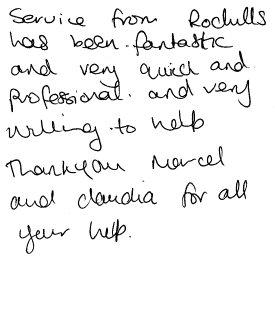 Service from Rochills
has been fantastic
and very quick and
professional. and very
willing to help
Thankyou Marcel
and claudia for all
your help.